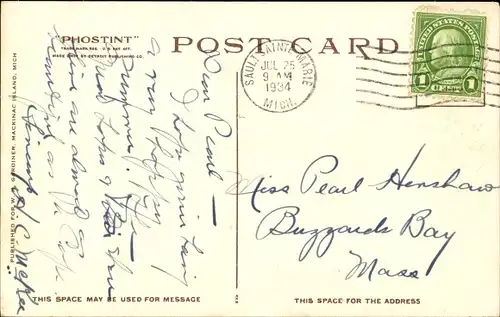 "PHOSTINT"
TRADE MARK REG. U.S. PAT. OFF.
MADE ONLY BY DETROIT PUBLISHING CO.
POST CARD
SAULT SAINTE MARIE
JUL 25
9 AM
1934
MICH.
UNITED STATES POSTAGE
1 CENT 1
PUBLISHED FOR W. H. GARDINER, MACKINAC ISLAND, MICH
Dear Pearl —
I hope you're having
a very happy
summer. The
Great Lakes
are almost as
beautiful as the Cape
Miss Pearl Henshaw
Buzzards Bay
Mass
THIS SPACE MAY BE USED FOR MESSAGE
THIS SPACE IS FOR THE ADDRESS